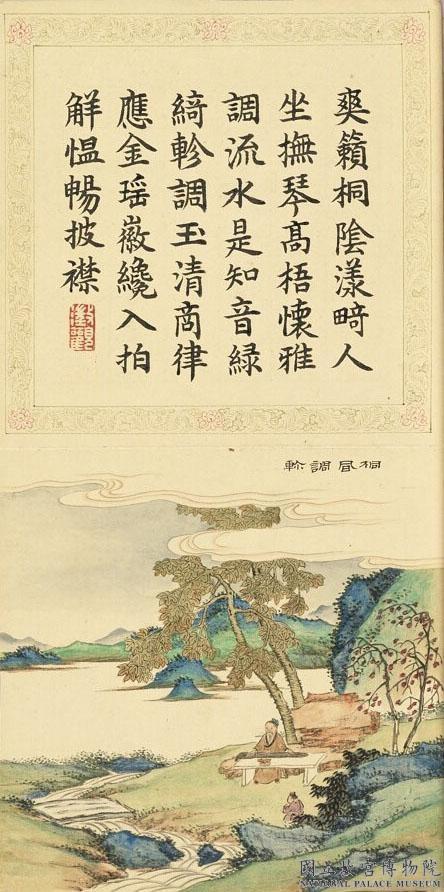 爽籟桐陰漾畸人
坐撫琴高梧懷雅
調流水是知音綠
綺軫調玉清商律
應金瑤徽纔入拍
觧愠暢披襟
桐風調軫
國立故宮博物院
NATIONAL PALACE MUSEUM